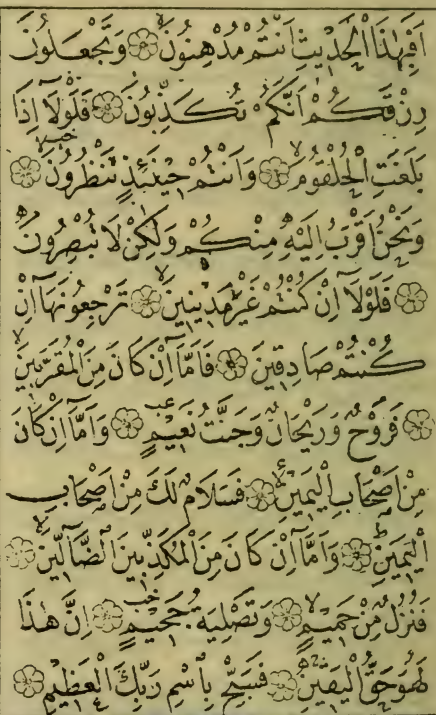 اَفَبِهٰذَا الْحَدٖيثِ اَنْتُمْ مُدْهِنُونَۙ ۝ وَتَجْعَلُونَ
رِزْقَكُمْ اَنَّكُمْ تُكَذِّبُونَ ۝ فَلَوْلَٓا اِذَا
بَلَغَتِ الْحُلْقُومَۙ ۝ وَاَنْتُمْ حٖينَئِذٍ تَنْظُرُونَۙ ۝
وَنَحْنُ اَقْرَبُ اِلَيْهِ مِنْكُمْ وَلٰكِنْ لَا تُبْصِرُونَ
۝ فَلَوْلَٓا اِنْ كُنْتُمْ غَيْرَ مَدٖينٖينَۙ ۝ تَرْجِعُونَهَٓا اِنْ
كُنْتُمْ صَادِقٖينَ ۝ فَاَمَّٓا اِنْ كَانَ مِنَ الْمُقَرَّبٖينَۙ
۝ فَرَوْحٌ وَرَيْحَانٌ وَجَنَّتُ نَعٖيمٍ ۝ وَاَمَّٓا اِنْ كَانَ
مِنْ اَصْحَابِ الْيَمٖينِۙ ۝ فَسَلَامٌ لَكَ مِنْ اَصْحَابِ
الْيَمٖينِۜ ۝ وَاَمَّٓا اِنْ كَانَ مِنَ الْمُكَذِّبٖينَ الضَّٓالّٖينَۙ ۝
فَنُزُلٌ مِنْ حَمٖيمٍۙ ۝ وَتَصْلِيَةُ جَحٖيمٍ ۝ اِنَّ هٰذَا
لَهُوَ حَقُّ الْيَقٖينِۚ ۝ فَسَبِّحْ بِاسْمِ رَبِّكَ الْعَظٖيمِ ۝